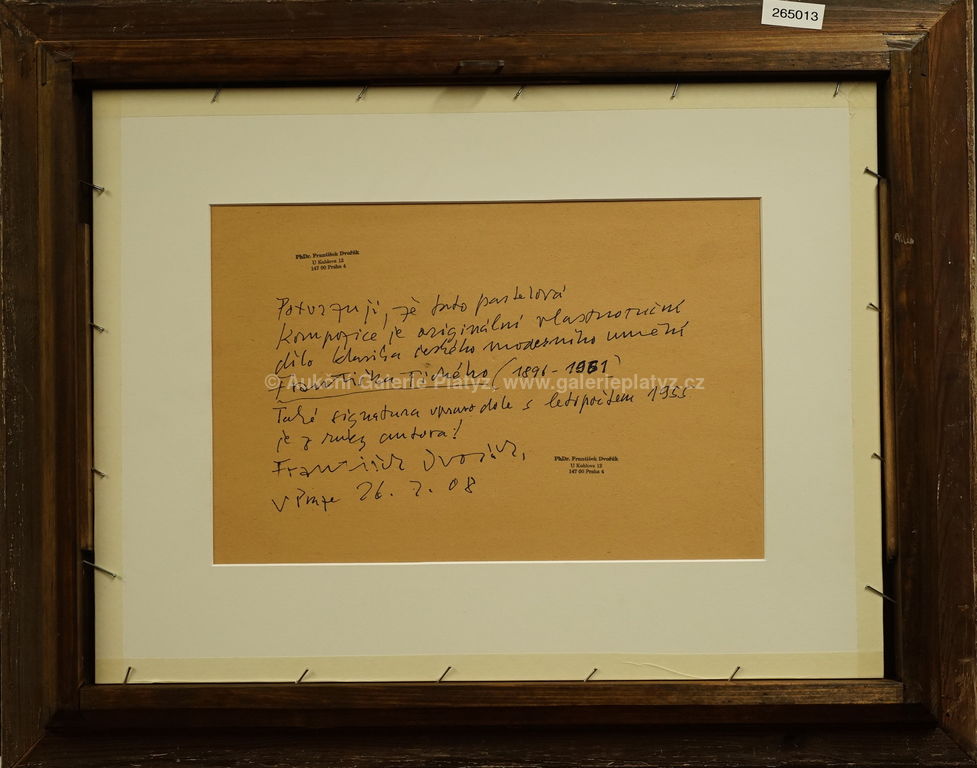 265013
PhDr. František Dvořák
U Kublova 12
147 00 Praha 4
Potvrzuji, že tato pastelová
kompozice je originální vlastnoruční
dílo klasika českého moderního umění
Františka Tichého (1896 - 1961)
© Aukční Galerie Platýz, www.galerieplatyz.cz
Také signatura vpravo dole s letopočtem 1955
je z ruky autora!
František Dvořák,
PhDr. František Dvořák
U Kublova 12
147 00 Praha 4
V Praze 26. 2. 08